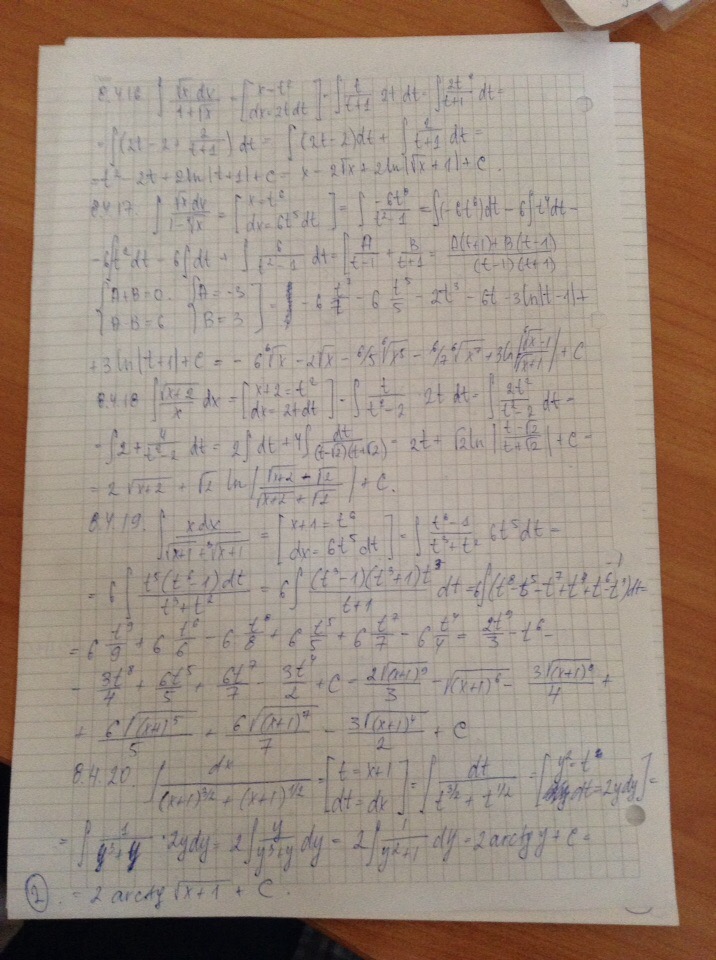 8.4.16 ∫ √x dx / 1+√x = [x=t² dx=2tdt] = ∫ t/t+1 2t dt = ∫ 2t²/t+1 dt =
= ∫(2t-2+ 2/t+1) dt = ∫(2t-2)dt + ∫ 2/t+1 dt =
= t² - 2t + 2ln|t+1| + C = x - 2√x + 2ln|√x+1| + C.
8.4.17. ∫ √x dx / 1-∛x = [x=t⁶ dx=6t⁵dt] = ∫ -6t⁸/t²-1 = ∫(-6t⁶)dt - 6∫t⁴dt -
- 6∫t²dt - 6∫dt + ∫ 6/t²-1 dt = [A/t-1 + B/t+1 = A(t+1)+B(t-1)/(t-1)(t+1)
{A+B=0 A-B=6 {A=-3 B=3] = - 6 t⁷/7 - 6 t⁵/5 - 2t³ - 6t - 3ln|t-1| +
+ 3ln|t+1| + C = - 6⁶√x - 2√x - 6/5 ⁶√x⁵ - 6/7 ⁶√x⁷ + 3ln|⁶√x-1/⁶√x+1| + C
8.4.18 ∫ √x+2/x dx = [x+2=t² dx=2tdt] = ∫ t/t²-2 2t dt = ∫ 2t²/t²-2 dt =
= ∫ 2+ 4/t²-2 dt = 2∫dt + 4∫ dt/(t-√2)(t+√2) = 2t + √2 ln|t-√2/t+√2| + C =
= 2√x+2 + √2 ln|√x+2 - √2/√x+2 + √2| + C.
8.4.19. ∫ xdx/√x+1 + ∛x+1 = [x+1=t⁶ dx=6t⁵dt] = ∫ t⁶-1/t³+t² 6t⁵dt =
= 6∫ t⁵(t⁶-1)dt/t³+t² = 6∫ (t³-1)(t³+1)t³/t+1 dt = 6∫(t⁸-t⁵-t⁷+t⁴+t⁶-t³)dt =
= 6 t⁹/9 + 6 t⁶/6 - 6 t⁸/8 + 6 t⁵/5 + 6 t⁷/7 - 6 t⁴/4 = 2t⁹/3 - t⁶ -
- 3t⁸/4 + 6t⁵/5 + 6t⁷/7 - 3t⁴/2 + C = 2√(x+1)⁹/3 - √(x+1)⁶ - 3√(x+1)⁸/4 +
+ 6√(x+1)⁵/5 + 6√(x+1)⁷/7 - 3√(x+1)⁴/2 + C
8.4.20. ∫ dx/(x+1)^3/2 + (x+1)^1/2 = [t=x+1 dt=dx] = ∫ dt/t^3/2 + t^1/2 = [y²=t dt=2ydy] =
= ∫ 1/y³+y · 2ydy = 2∫ y/y³+y dy = 2∫ 1/y²+1 dy = 2arctg y + C =
② = 2 arctg √x+1 + C.